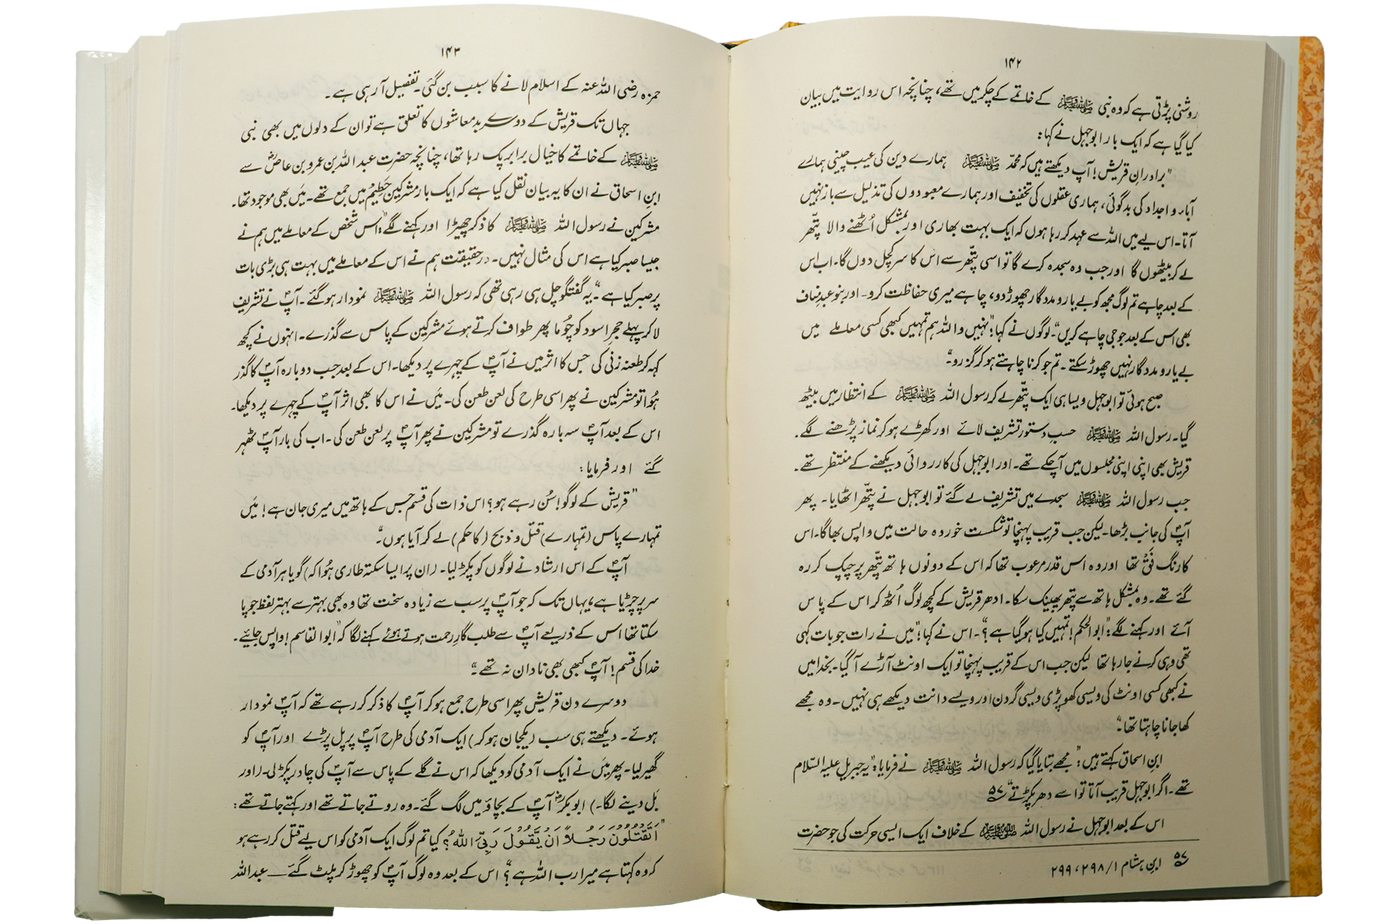 ۱۴۲
روشنی پڑتی ہے کہ وہ نبی ﷺ کے خاتمے کے چکر میں تھے، چنانچہ اس روایت میں بیان
کیا گیا ہے کہ ایک بار ابوجہل نے کہا:
"برادرانِ قریش! آپ دیکھتے ہیں کہ محمد ﷺ ہمارے دین کی عیب چینی ہمارے
آباء و اجداد کی بدگوئی، ہماری عقلوں کی تخفیف اور ہمارے معبودوں کی تذلیل سے باز نہیں
آتا۔ اس لیے میں اللہ سے عہد کر رہا ہوں کہ ایک بہت بھاری اور بمشکل اُٹھنے والا پتّھر
لے کر بیٹھوں گا اور جب وہ سجدہ کرے گا تو اسی پتّھر سے اس کا سر کچل دوں گا۔ اب اس
کے بعد چاہے تم لوگ مجھ کو بے یار و مددگار چھوڑ دو، چاہے میری حفاظت کرو۔ اور بنو عبد مناف
بھی اس کے بعد جو جی چاہے کریں"۔ لوگوں نے کہا: "نہیں واللہ ہم تمہیں کبھی کسی معاملے میں
بے یار و مددگار نہیں چھوڑ سکتے۔ تم جو کرنا چاہتے ہو کر گزرو"۔
صبح ہوئی تو ابوجہل ویسا ہی ایک پتّھر لے کر رسول اللہ ﷺ کے انتظار میں بیٹھ
گیا۔ رسول اللہ ﷺ حسب دستور تشریف لائے اور کھڑے ہو کر نماز پڑھنے لگے۔
قریش بھی اپنی اپنی مجلسوں میں آچکے تھے۔ اور ابوجہل کی کارروائی دیکھنے کے منتظر تھے۔
جب رسول اللہ ﷺ سجدے میں تشریف لے گئے تو ابوجہل نے پتّھر اٹھایا۔ پھر
آپؐ کی جانب بڑھا۔ لیکن جب قریب پہنچا تو شکست خوردہ حالت میں واپس بھاگا۔ اس
کا رنگ فَق تھا اور وہ اس قدر مرعوب تھا کہ اس کے دونوں ہاتھ پتّھر پر چپک کر رہ
گئے تھے۔ وہ بمشکل ہاتھ سے پتھر پھینک سکا۔ ادھر قریش کے کچھ لوگ اُٹھ کر اس کے پاس
آئے اور کہنے لگے: "ابوالحکم! تمہیں کیا ہو گیا ہے؟"۔ اس نے کہا: "میں نے رات جو بات کہی
تھی وہی کرنے جا رہا تھا لیکن جب اس کے قریب پہنچا تو ایک اونٹ آڑے آگیا۔ بخدا میں
نے کبھی کسی اونٹ کی ویسی کھوپڑی ویسی گردن اور ویسے دانت دیکھے ہی نہیں۔ وہ مجھے
کھا جانا چاہتا تھا"۔
ابن اسحاق کہتے ہیں: "مجھے بتایا گیا کہ رسول اللہ ﷺ نے فرمایا: "یہ جبریل علیہ السلام
تھے۔ اگر ابوجہل قریب آتا تو اسے دھر پکڑتے"۔ ۵۷
اس کے بعد ابوجہل نے رسول اللہ ﷺ کے خلاف ایک ایسی حرکت کی جو حضرت
۵۷ ابن ہشام ۱/ ۲۹۸، ۲۹۹
۱۴۳
حمزہ رضی اللہ عنہ کے اسلام لانے کا سبب بن گئی۔ تفصیل آرہی ہے۔
جہاں تک قریش کے دوسرے بدمعاشوں کا تعلق ہے تو ان کے دلوں میں بھی نبی
ﷺ کے خاتمے کا خیال برابر پک رہا تھا، چنانچہ حضرت عبداللہ بن عمرو بن عاصؓ سے
ابن اسحاق نے ان کا یہ بیان نقل کیا ہے کہ ایک بار مشرکین حَطِیم میں جمع تھے۔ میں بھی موجود تھا۔
مشرکین نے رسول اللہ ﷺ کا ذکر چھیڑا اور کہنے لگے: "اس شخص کے معاملے میں ہم نے
جیسا صبر کیا ہے اس کی مثال نہیں۔ درحقیقت ہم نے اس کے معاملے میں بہت ہی بڑی بات
پر صبر کیا ہے"۔ یہ گفتگو چل ہی رہی تھی کہ رسول اللہ ﷺ نمودار ہو گئے۔ آپؐ نے تشریف
لا کر پہلے حجرِ اسود کو چُوما پھر طواف کرتے ہوئے مشرکین کے پاس سے گذرے۔ انہوں نے کچھ
کہہ کر طعنہ زنی کی جس کا اثر میں نے آپؐ کے چہرے پر دیکھا۔ اس کے بعد جب دوبارہ آپؐ کا گذر
ہُوا تو مشرکین نے پھر اسی طرح کی لعن طعن کی۔ میں نے اس کا بھی اثر آپؐ کے چہرے پر دیکھا۔
اس کے بعد آپؐ سہ بارہ گذرے تو مشرکین نے پھر آپؐ پر لعن طعن کی۔ اب کی بار آپؐ ٹھہر
گئے اور فرمایا:
"قریش کے لوگو! سُن رہے ہو؟ اس ذات کی قسم جس کے ہاتھ میں میری جان ہے! میں
تمہارے پاس (تمہارے) قتل و ذبح (کا حکم) لے کر آیا ہوں"۔
آپؐ کے اس ارشاد نے لوگوں کو پکڑ لیا۔ (ان پر ایسا سکتہ طاری ہُوا کہ) گویا ہر آدمی کے
سر پر چڑیا ہے، یہاں تک کہ جو آپؐ پر سب سے زیادہ سخت تھا وہ بھی بہتر سے بہتر لفظ جو پا
سکتا تھا اس کے ذریعے آپؐ سے طلب گارِ رحمت ہوتے ہوئے کہنے لگا کہ "ابوالقاسم! واپس جایئے۔
خدا کی قسم! آپؐ کبھی بھی نادان نہ تھے"۔
دوسرے دن قریش پھر اسی طرح جمع ہو کر آپؐ کا ذکر کر رہے تھے کہ آپؐ نمودار
ہوئے۔ دیکھتے ہی سب (یکجان ہو کر) ایک آدمی کی طرح آپؐ پر پل پڑے اور آپؐ کو
گھیر لیا۔ پھر میں نے ایک آدمی کو دیکھا کہ اس نے گلے کے پاس سے آپؐ کی چادر پکڑ لی۔ (اور
بَل دینے لگا۔) ابوبکرؓ آپؐ کے بچاؤ میں لگ گئے۔ وہ روتے جاتے تھے اور کہتے جاتے تھے:
"اَتَقْتُلُوْنَ رَجُلًا اَنْ يَّقُوْلَ رَبِّيَ اللهُ؟ کیا تم لوگ ایک آدمی کو اس لیے قتل کر رہے ہو
کہ وہ کہتا ہے میرا رب اللہ ہے؟" اس کے بعد وہ لوگ آپؐ کو چھوڑ کر پلٹ گئے ــــ عبداللہ